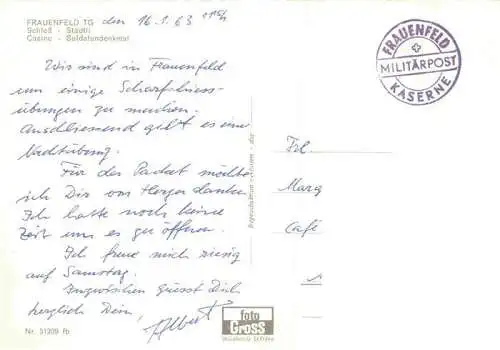 FRAUENFELD TG den 16.1.63
Schloß - Städtli
Casino - Soldatendenkmal
Wir sind in Frauenfeld
um einige Scharfschiess-
übungen zu machen.
Anschliessend gibt es eine
Nachtübung.
Für das Packet möchte
ich Dir von Herzen danken
Ich hatte noch keine
Zeit um es zu öffnen.
Ich freue mich riesig
auf Samstag.
Inzwischen grüsst Dich
herzlich Dein, Albert
Nr. 31209 fb
foto
GROSS
FRAUENFELD
MILITÄRPOST
KASERNE
Frl.
Marg
Café